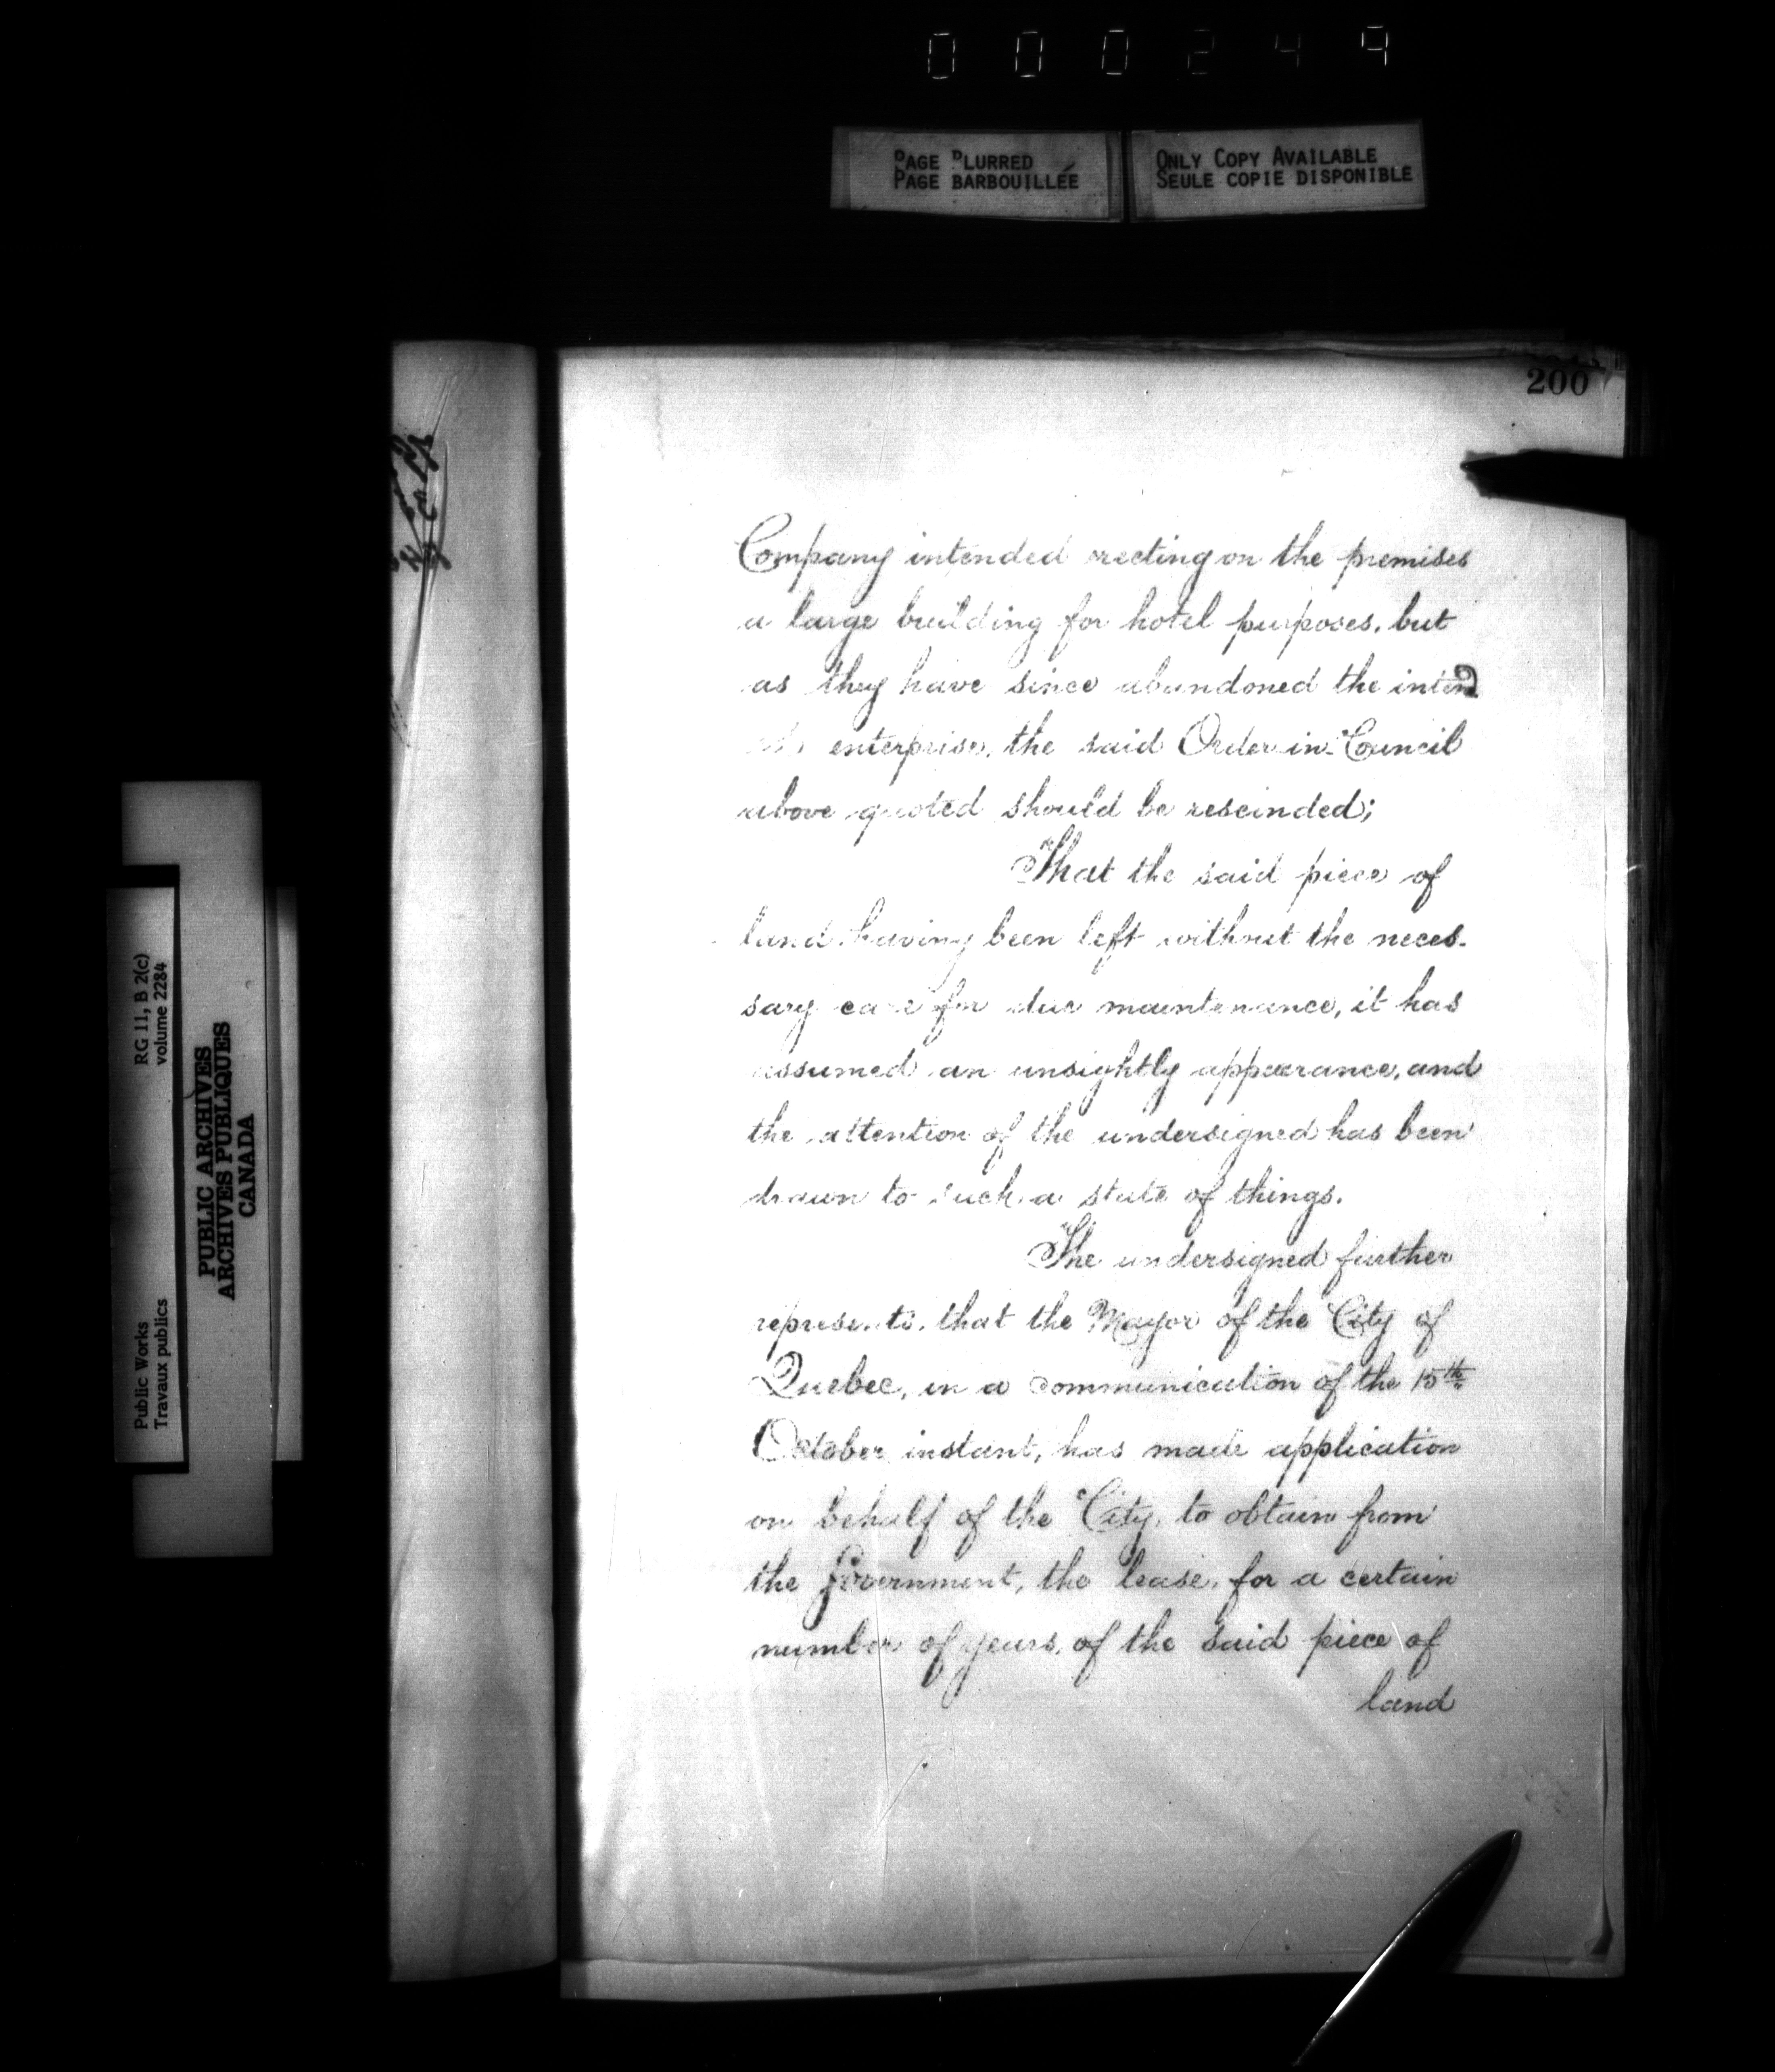 000249
PAGE BLURRED
PAGE BARBOUILLÉE
ONLY COPY AVAILABLE
SEULE COPIE DISPONIBLE
200
Company intended erecting on the premises
a large building for hotel purposes, but
as they have since abandoned the intend
ed enterprise, the said Order-in-Council
above quoted should be rescinded;
That the said piece of
land having been left without the neces-
sary care for due maintenance, it has
assumed an unsightly appearance, and
the attention of the undersigned has been
drawn to such a state of things.
The undersigned further
represents, that the Mayor of the City of
Quebec, in a communication of the 15th
October instant, has made application
on behalf of the City, to obtain from
the Government, the lease, for a certain
number of years, of the said piece of
land
Public Works
Travaux publics
RG 11, B 2(c)
volume 2284
PUBLIC ARCHIVES
ARCHIVES PUBLIQUES
CANADA